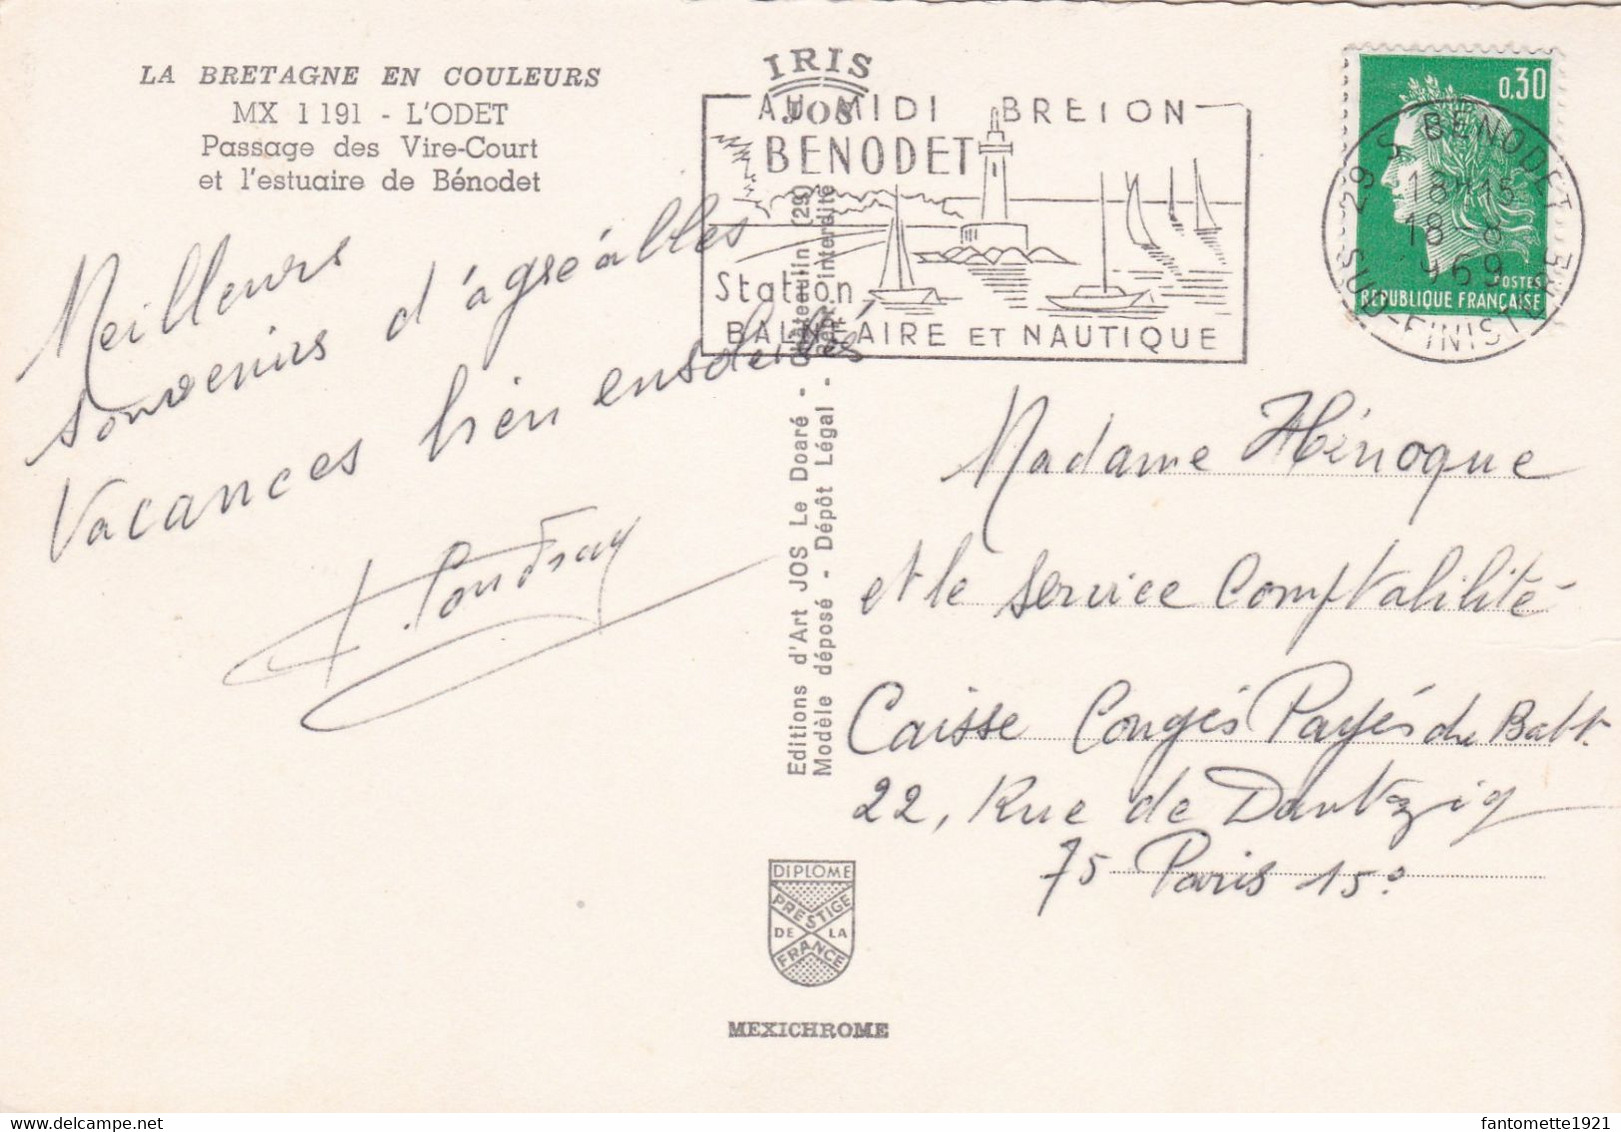 LA BRETAGNE EN COULEURS
MX 1191 - L'ODET
Passage des Vire-Court
et l'estuaire de Bénodet
IRIS
JOS
AU MIDI BRETON
BENODET
Station
BALNÉAIRE ET NAUTIQUE
0,30
POSTES
REPUBLIQUE FRANÇAISE
29 S BENODET
18H15
18-8
1969
SUD-FINISTERE
Meilleurs
souvenirs d'agréables
Vacances bien ensoleillés
Editions d'Art JOS Le Doaré - Châteaulin (29)
Modèle déposé - Dépôt Légal - Repr. interdite
Madame Hénoque
et le service Comptabilité
Caisse Congés Payés du Batt.
22, Rue de Dantzig
75 Paris 15°
DIPLOME
PRESTIGE
DE LA
FRANCE
MEXICHROME
fantomette1921